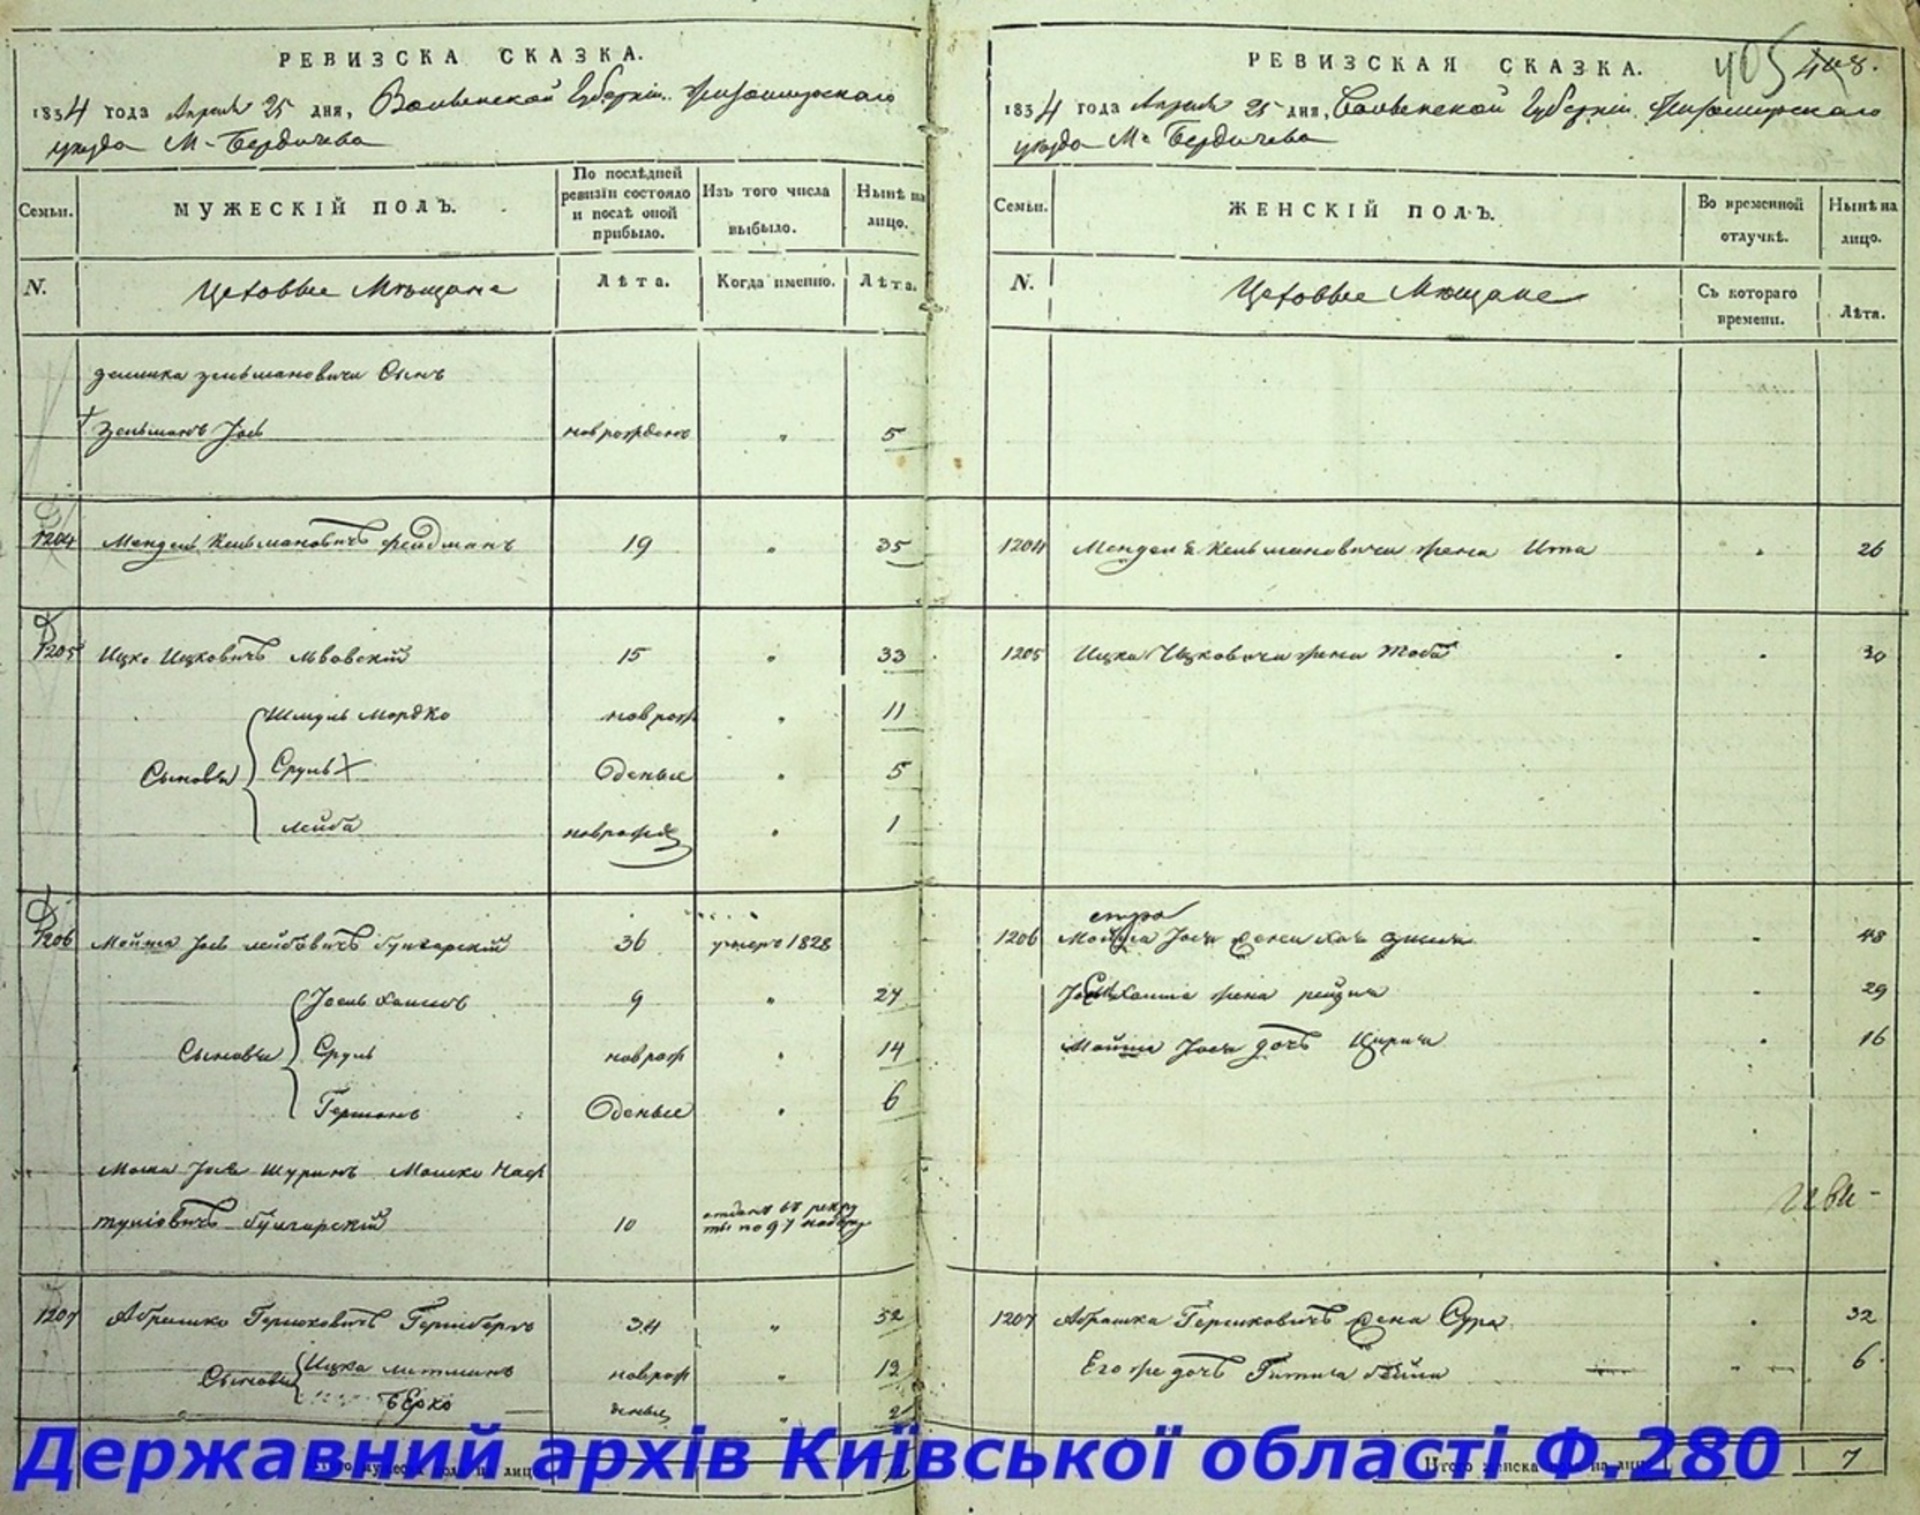 РЕВИЗСКА СКАЗКА.
1834 года Апреля 25 дня, Волынской Губернии Житомирскаго
уезда М. Бердичева
Семьи.
МУЖЕСКІЙ ПОЛЪ.
По послѣдней
ревизіи состояло
и послѣ оной
прибыло.
Изъ того числа
выбыло.
Нынѣ на
лицо.
N.
Цеховые Мѣщане
Лѣта.
Когда именно.
Лѣта.
Зельмановича Сынъ
Зельманъ Іось новрожденъ 5
1204 Мендель Кельмановичъ Фейдманъ 19 35
1205 Ицко Ицковичъ Львовскій 15 33
Шмуль Мордко новрож 11
Сыновья Сруль 5
Лейба новрожд 1
1206 Мойша Іось Лейбовичъ Булгарскій 36 умеръ 1828
Іось Хаимъ 9 27
Сыновья Сруль новрож 14
Гершонъ 6
Іося Шуринъ Мошко Наф
туліовичъ Булгарскій 10 отданъ въ рекру
ты по 97 набору
1207 Абрашко Гершковичъ Гершберъ 34 52
Сыновья Ицка Литманъ новрож 12
Берко 2
РЕВИЗСКАЯ СКАЗКА.
405 408.
1834 года Апреля 25 дня, Волынской Губернии Житомирскаго
уезда М. Бердичева
Семьи.
ЖЕНСКІЙ ПОЛЪ.
Во временной
отлучкѣ.
Нынѣ на
лицо.
N.
Цеховые Мѣщане
Съ котораго
времени.
Лѣта.
1204 Менделя Кельмановича жена Ита 26
1205 Ицка Ицковича жена Тоба 30
1206 Мойша Іося жена 48
Хаима жена Рейзя 29
Мойше Іося дочь 16
1207 Абрашка Гершковичъ жена Сура 32
Его же дочь Гитля Бейла 6
Итого женска на лиц 7
Державний архів Київської області Ф.280